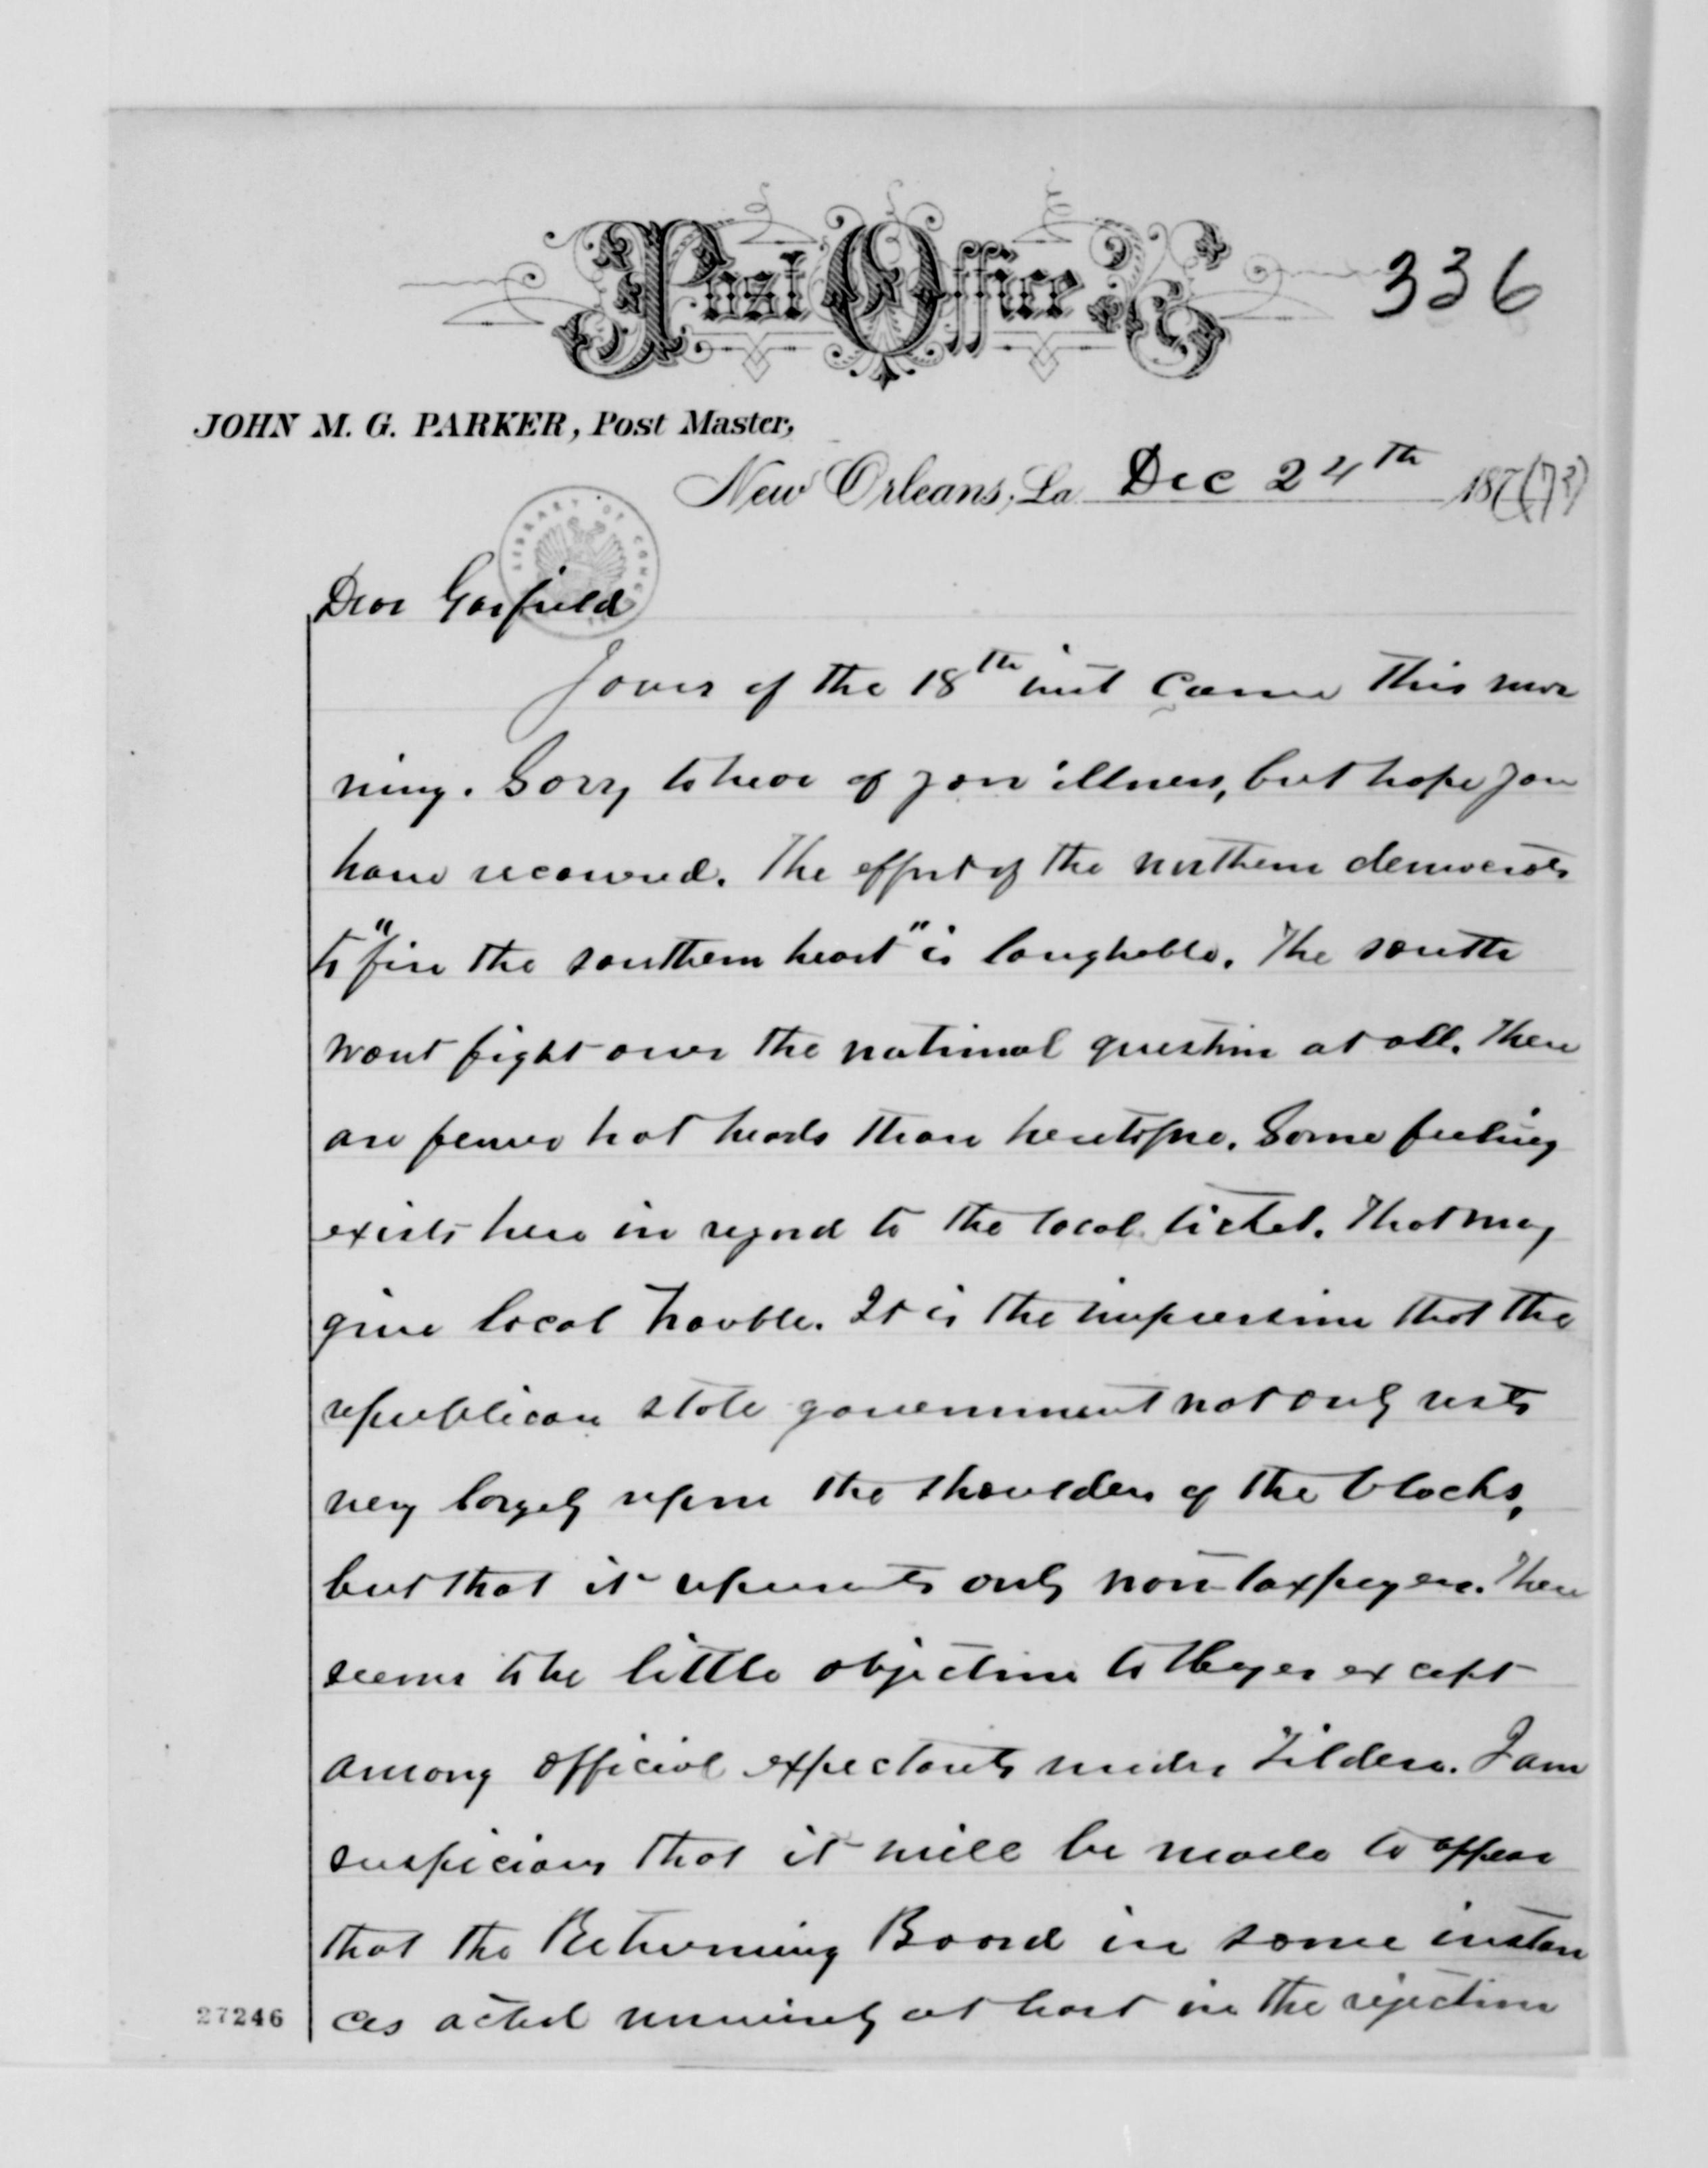 Post Office
336
JOHN M. G. PARKER, Post Master,
New Orleans, La. Dec 24th 187(73)
LIBRARY OF CONG
Dear Garfield
Yours of the 18th inst came this mor
ning. Sorry to hear of your illness, but hope you
have recovered. The effort of the northern democrats
to "fire the southern heart" is laughable. The south
wont fight over the national question at all. There
are fewer hot heads than heretofore. Some feeling
exists here in regard to the local ticket. That may
give local trouble. It is the impression that the
republican state government not only rests
very largely upon the shoulders of the blacks,
but that it represents only non-taxpayers. There
seems to be little objection to Hayes except
among official expectants under Tilden. I am
suspicious that it will be made to appear
that the Returning Board in some instan
ces acted unwisely at least in the rejection
27246